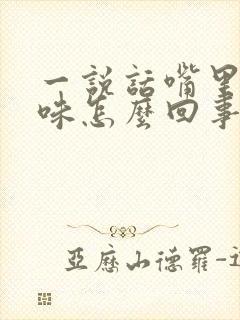 一說話嘴里
味怎麼回事
亞歷山德羅-